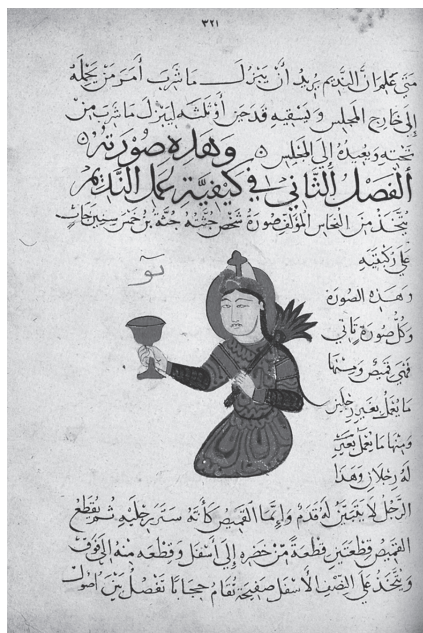 ٣٢١
متى علم ان النديم يريد أن ينزل ما شرب أمر من يحمله
إلى خارج المجلس ويسقيه قدحين أو ثلثة لينزل ما شرب من
تحته ويعيده إلى المجلس وهذه صورته
الفصل الثاني في كيفية عمل النديم
يتخذ من النحاس المؤلف صورة شخص جثته جثة بن خمس سنين جاث
على ركبتيه
وهذه الصورة
وكل صورة تاتي
فهي قميص ومنها
ما يعمل بغير رجلين
ومنها ما يعمل بغير
له رجلان وهذا
الرجل لا يتبين له قدم وإنما القميص كأنه ستر رجليه ثم يقطع
القميص قطعتين قطعة من خصره إلى أسفل وقطعه منه إلى فوق
ويتخذ على النصف الأسفل صفيحة تقام حجابا تفصل بين اصول